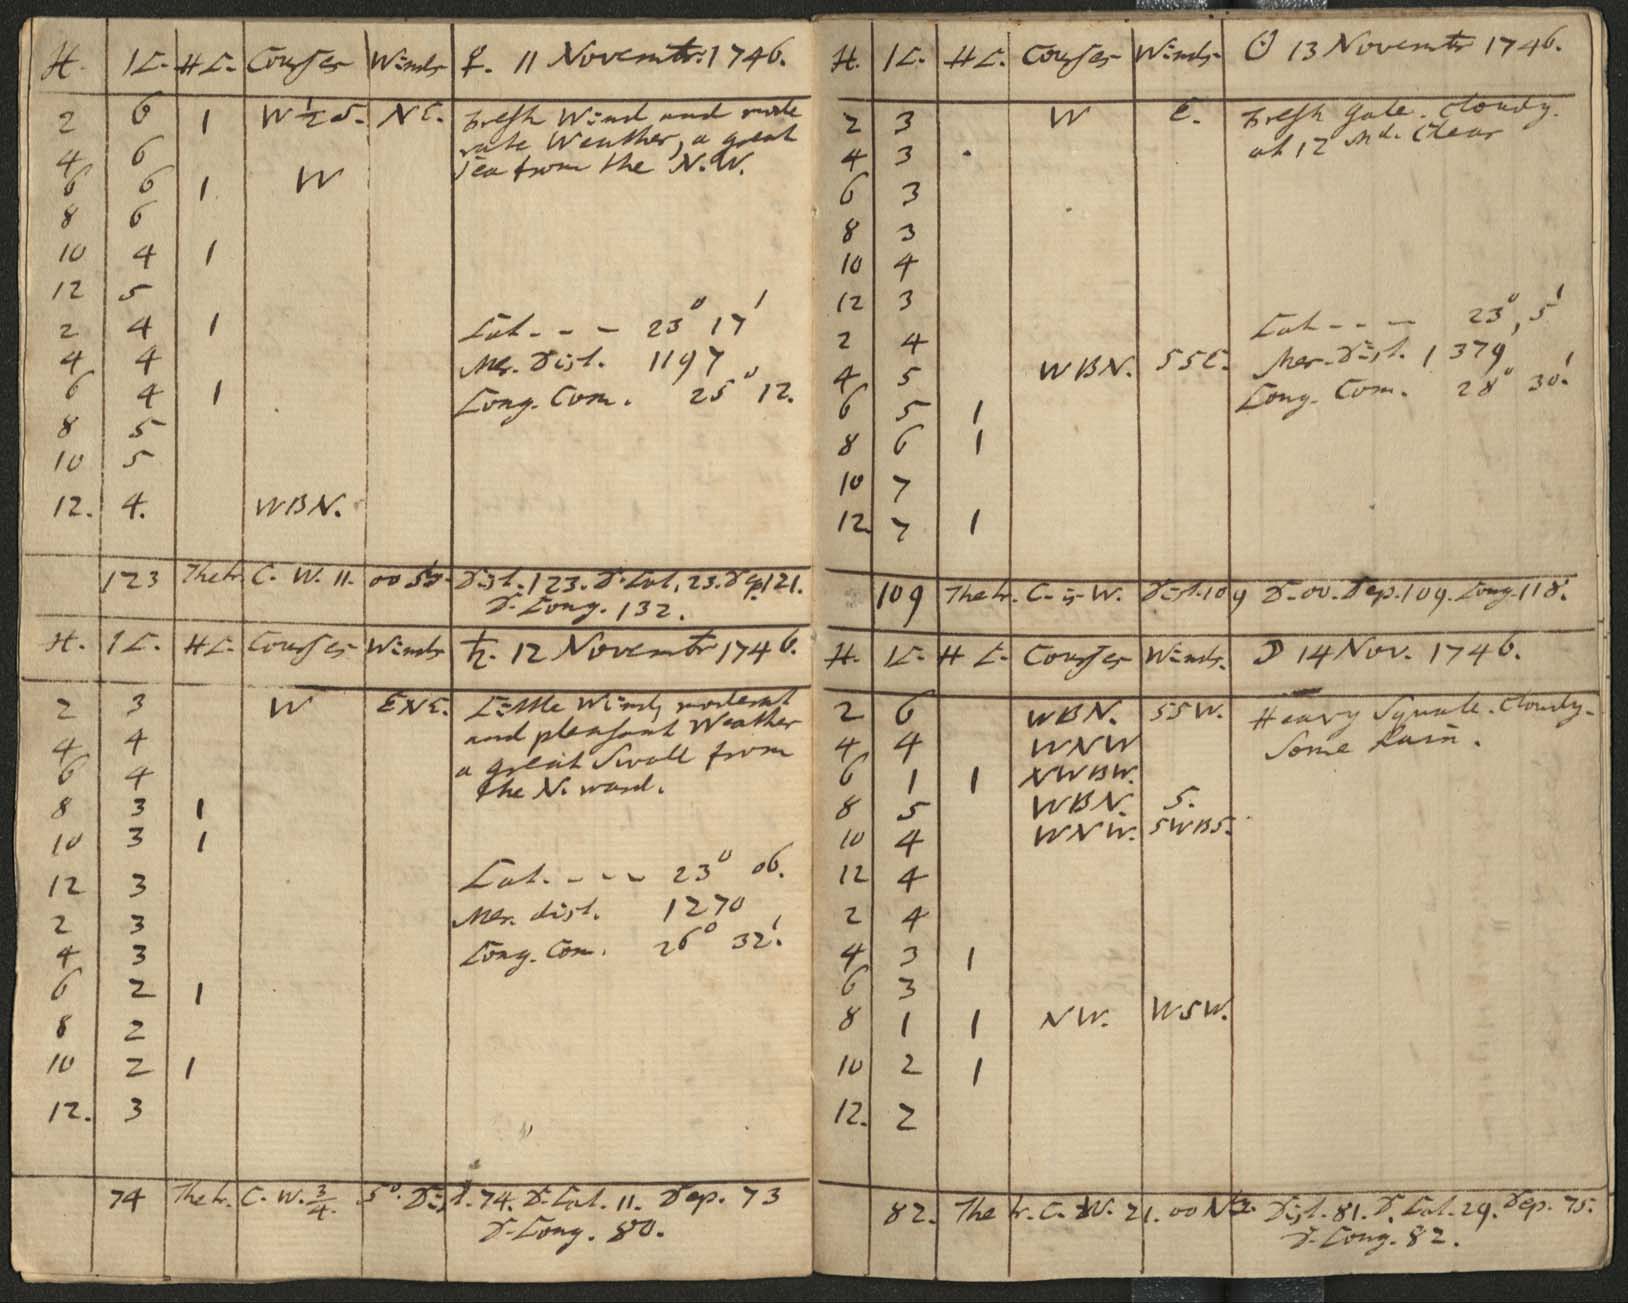 H. | K. | HK. | Courses | Winds | ♀. 11 Novembr. 1746.
2 | 6 | 1 | W ½ S. | NE. | Fresh Wind and mode
rate Weather, a great
4 | 6
Sea from the N.W.
6 | 6 | 1 | W
8 | 6
10 | 4 | 1
12 | 5
2 | 4 | 1 | Lat - - - 23° 17'
4 | 4 | Mer. Dist. 1197
6 | 4 | 1 | Long. Com. 25° 12.
8 | 5
10 | 5
12. | 4. | WBN.
123 The tr. C. W. 11. 00 S. Dist. 123. D. Lat. 23. Dep. 121.
D. Long. 132.
H. | K. | HK. | Courses | Winds | ♄. 12 Novembr 1746.
2 | 3 | W | ENE. | Little Wind, moderat
4 | 4 | and pleasant Weather
6 | 4 | a great Swell from
8 | 3 | 1 | the N. ward.
10 | 3 | 1
12 | 3 | Lat. - - - 23° 06.
2 | 3 | Mer. dist. 1270
4 | 3 | Long. Com. 26° 32'.
6 | 2 | 1
8 | 2
10 | 2 | 1
12. | 3
74 The tr. C. W. ¾ S°. Dist. 74. D. Lat. 11. Dep. 73
D. Long. 80.
H. | K. | HK. | Courses | Winds. | ☉ 13 Novembr 1746.
2 | 3 | W | E. | Fresh Gale. Cloudy.
4 | 3 | at 12 Md. Clear
6 | 3
8 | 3
10 | 4
12 | 3 | Lat - - - 23°, 5'
2 | 4 | Mer. Dist. 1379
4 | 5 | WBN. | SSE. | Long. Com. 28° 30'.
6 | 5 | 1
8 | 6 | 1
10 | 7
12 | 7 | 1
109 The tr. C. is W. Dist. 109 D. 00. Dep. 109. Long. 118'.
H. | K. | HK. | Courses | Winds. | ☽ 14 Nov. 1746.
2 | 6 | WBN. | SSW. | Heavy Squale. Cloudy.
4 | 4 | WNW | Some Rain.
6 | 1 | 1 | NWBW.
8 | 5 | WBN. | S.
10 | 4 | WNW. | SWBS.
12 | 4
2 | 4
4 | 3 | 1
6 | 3
8 | 1 | 1 | NW. | WSW.
10 | 2 | 1
12. | 2
82. The tr. C. W. 21. 00 N. Dist. 81. D. Lat. 29. Dep. 75.
D. Long. 82.